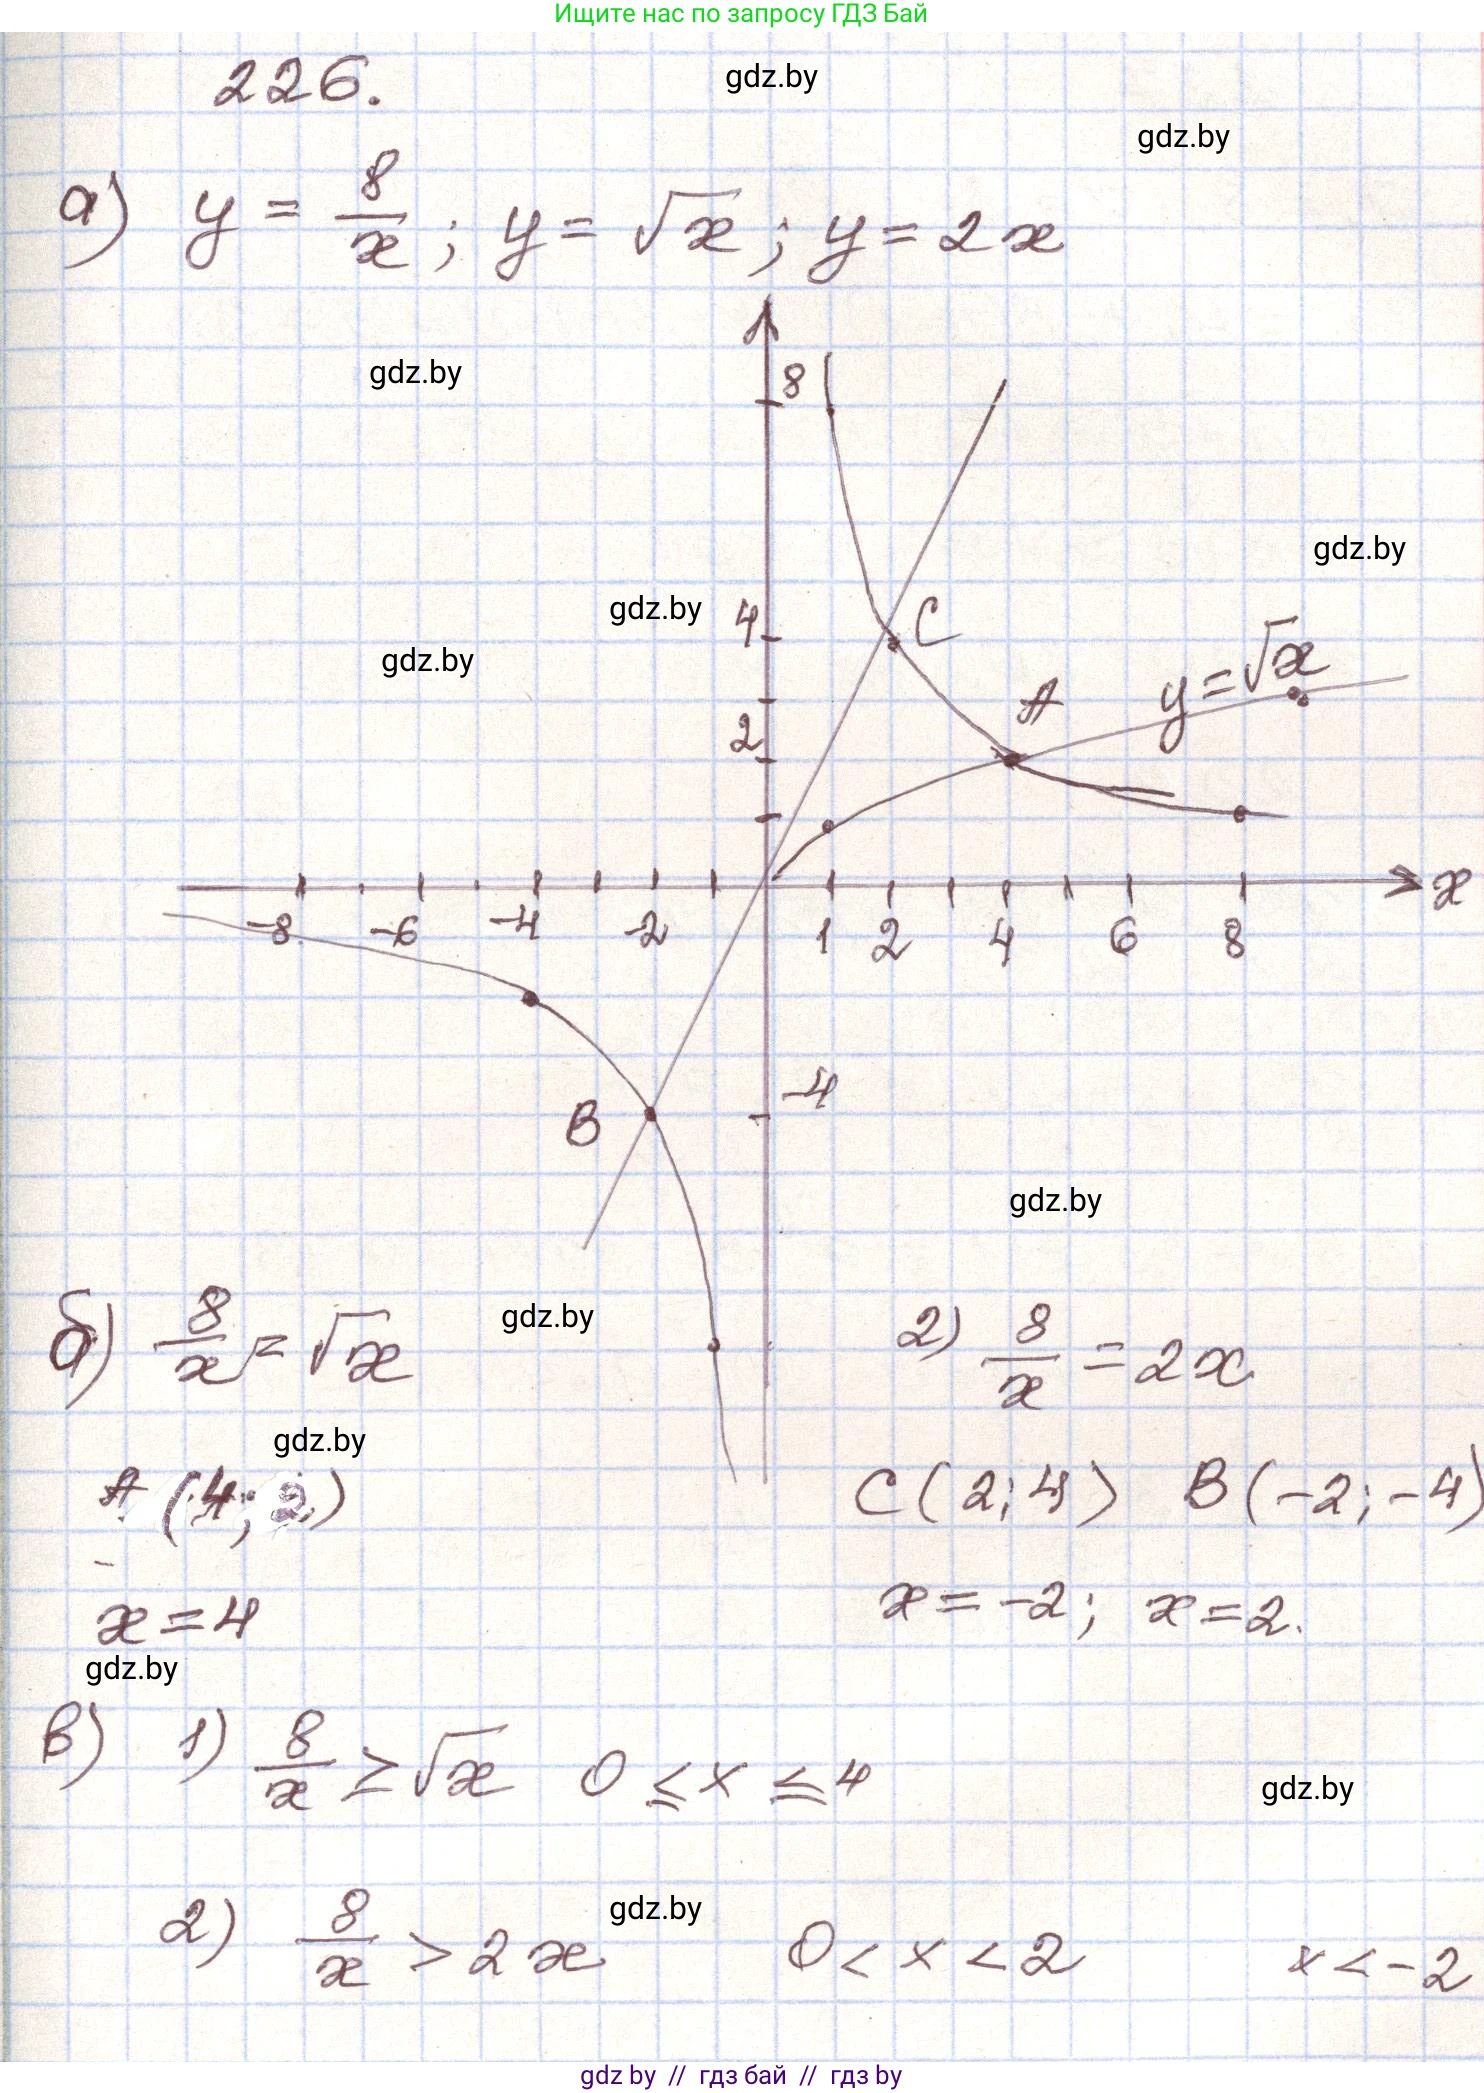 Ищите нас по запросу ГДЗ Бай
226.
gdz.by
gdz.by
а) y = 8/x ; y = √x ; y = 2x
gdz.by
8
gdz.by
gdz.by
4
C
gdz.by
y = √x
A
2
x
-8 -6 -4 -2 1 2 4 6 8
-4
B
gdz.by
б) 8/x = √x
gdz.by
2) 8/x = 2x
gdz.by
A (4; 2)
C (2; 4) B (-2; -4)
x = 4
x = -2; x = 2.
gdz.by
в) 1) 8/x ≥ √x 0 ≤ x ≤ 4
gdz.by
2) 8/x > 2x 0 < x < 2 x < -2
gdz.by
gdz.by // гдз бай // гдз by